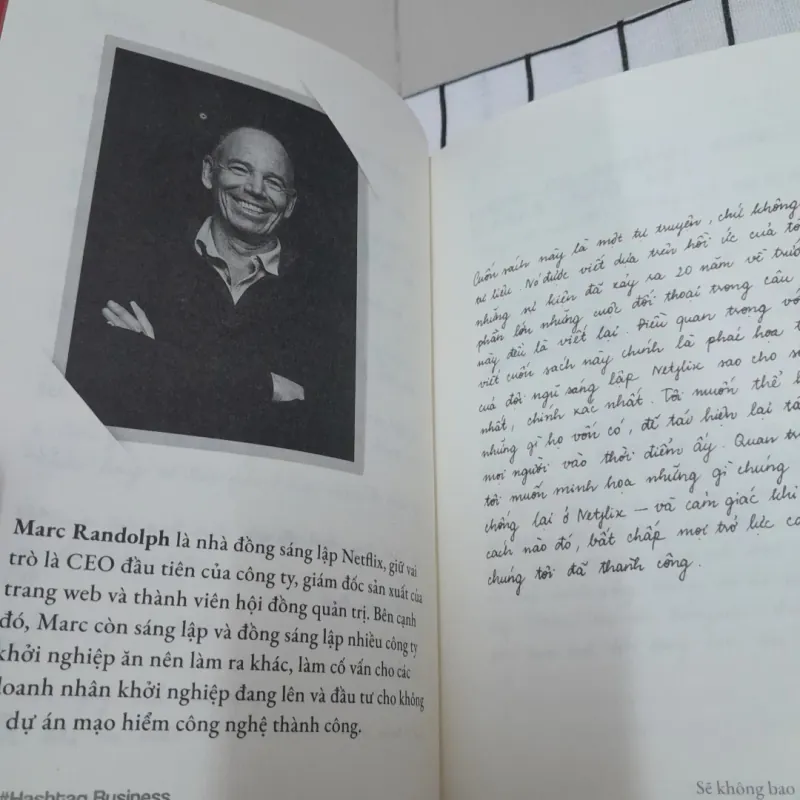 Marc Randolph là nhà đồng sáng lập Netflix, giữ vai
trò là CEO đầu tiên của công ty, giám đốc sản xuất của
trang web và thành viên hội đồng quản trị. Bên cạnh
đó, Marc còn sáng lập và đồng sáng lập nhiều công ty
khởi nghiệp ăn nên làm ra khác, làm cố vấn cho các
doanh nhân khởi nghiệp đang lên và đầu tư cho không
dự án mạo hiểm công nghệ thành công.
#Hashtag Business
Cuốn sách này là một tự truyện, chứ không
tư liệu. Nó được viết dựa trên hồi ức của tô
những sự kiện đã xảy ra 20 năm về trướ
phần lớn những cuộc đối thoại trong câu
này đều là viết lại. Điều quan trọng vớ
viết cuốn sách này chính là phác họa t
của đội ngũ sáng lập Netflix sao cho s
nhất, chính xác nhất. Tôi muốn thể h
những gì họ vốn có, để tái hiện lại tâ
mọi người vào thời điểm ấy. Quan tr
tôi muốn minh họa những gì chúng
chống lại ở Netflix – và cảm giác khi
cách nào đó, bất chấp mọi trở lực ca
chúng tôi đã thành công.
Sẽ không bao